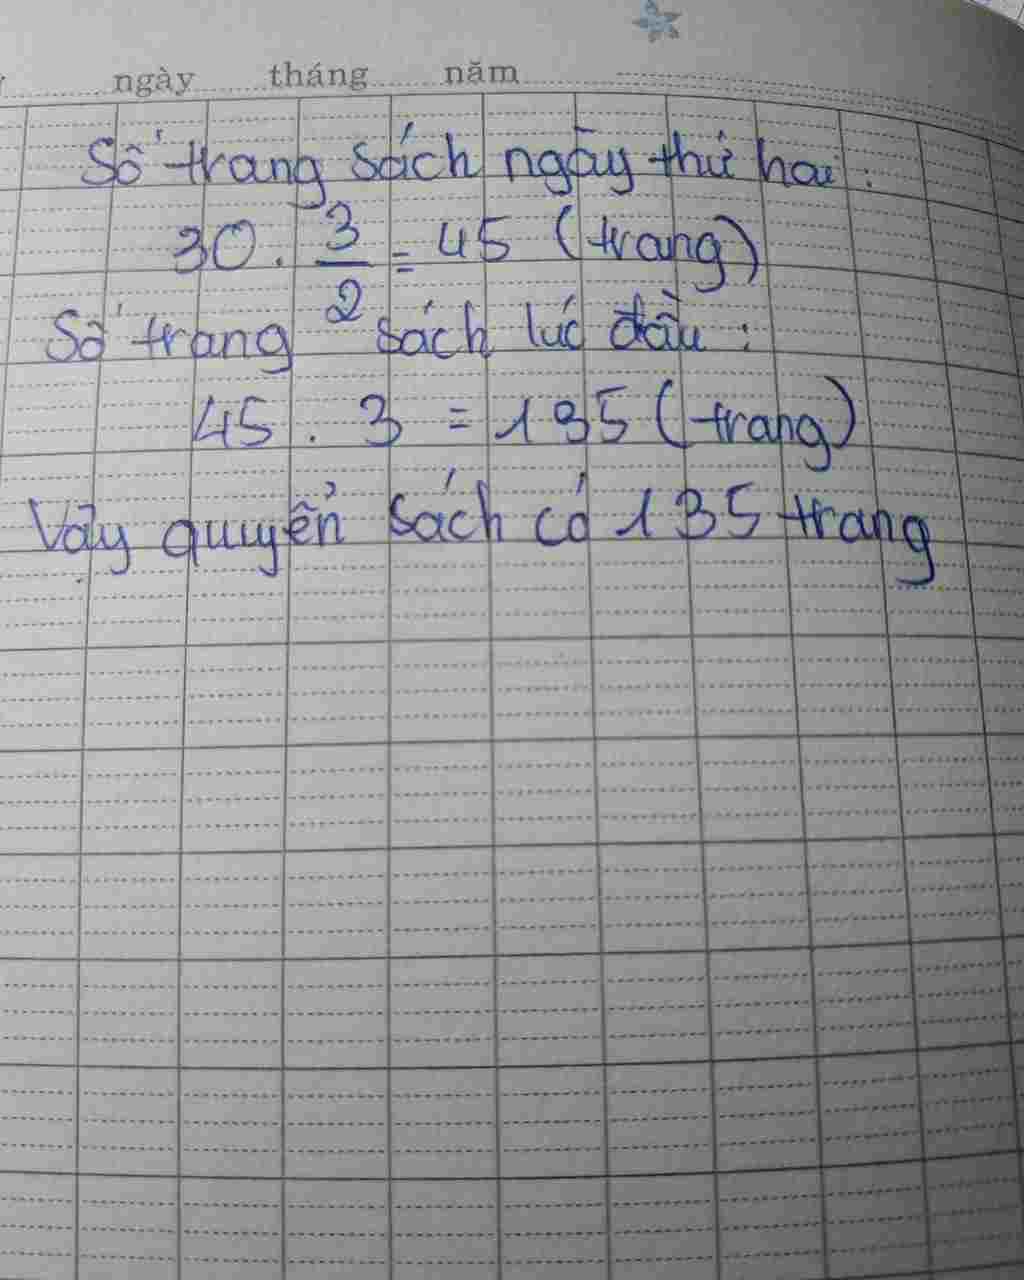 ngày tháng năm
Số trang sách ngày thứ hai:
30 . 3/2 = 45 (trang)
Số trang sách lúc đầu :
45 . 3 = 135 (trang)
Vậy quyển sách có 135 trang